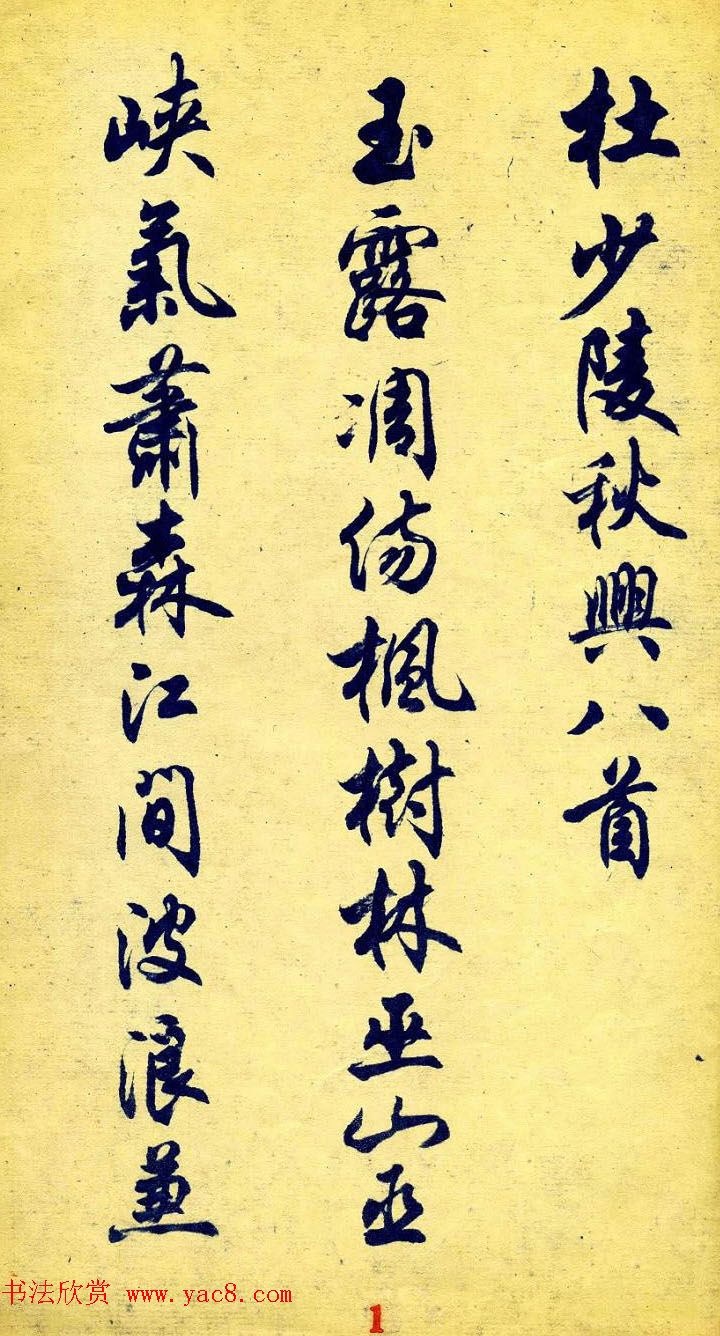 杜少陵秋興八首
玉露凋傷楓樹林巫山巫
峽氣蕭森江間波浪兼
书法欣赏 www.yac8.com
1